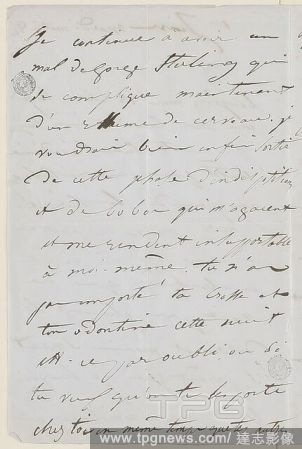 Je continue à avoir un
mal de gorge qui
se complique maintenant
d'un rhume de cerveau. je
voudrais bien enfin sortir
de cette phase d'indisposition
et de bobos qui m'agacent
et me rendent insupportable
à moi-même. tu n'as
pas emporté ta brosse et
ton odontine cette nuit
est-ce par oubli ou si
tu veux qu'on te le porte
chez toi en même temps que
TPG
www.tpgnews.com/達志影像